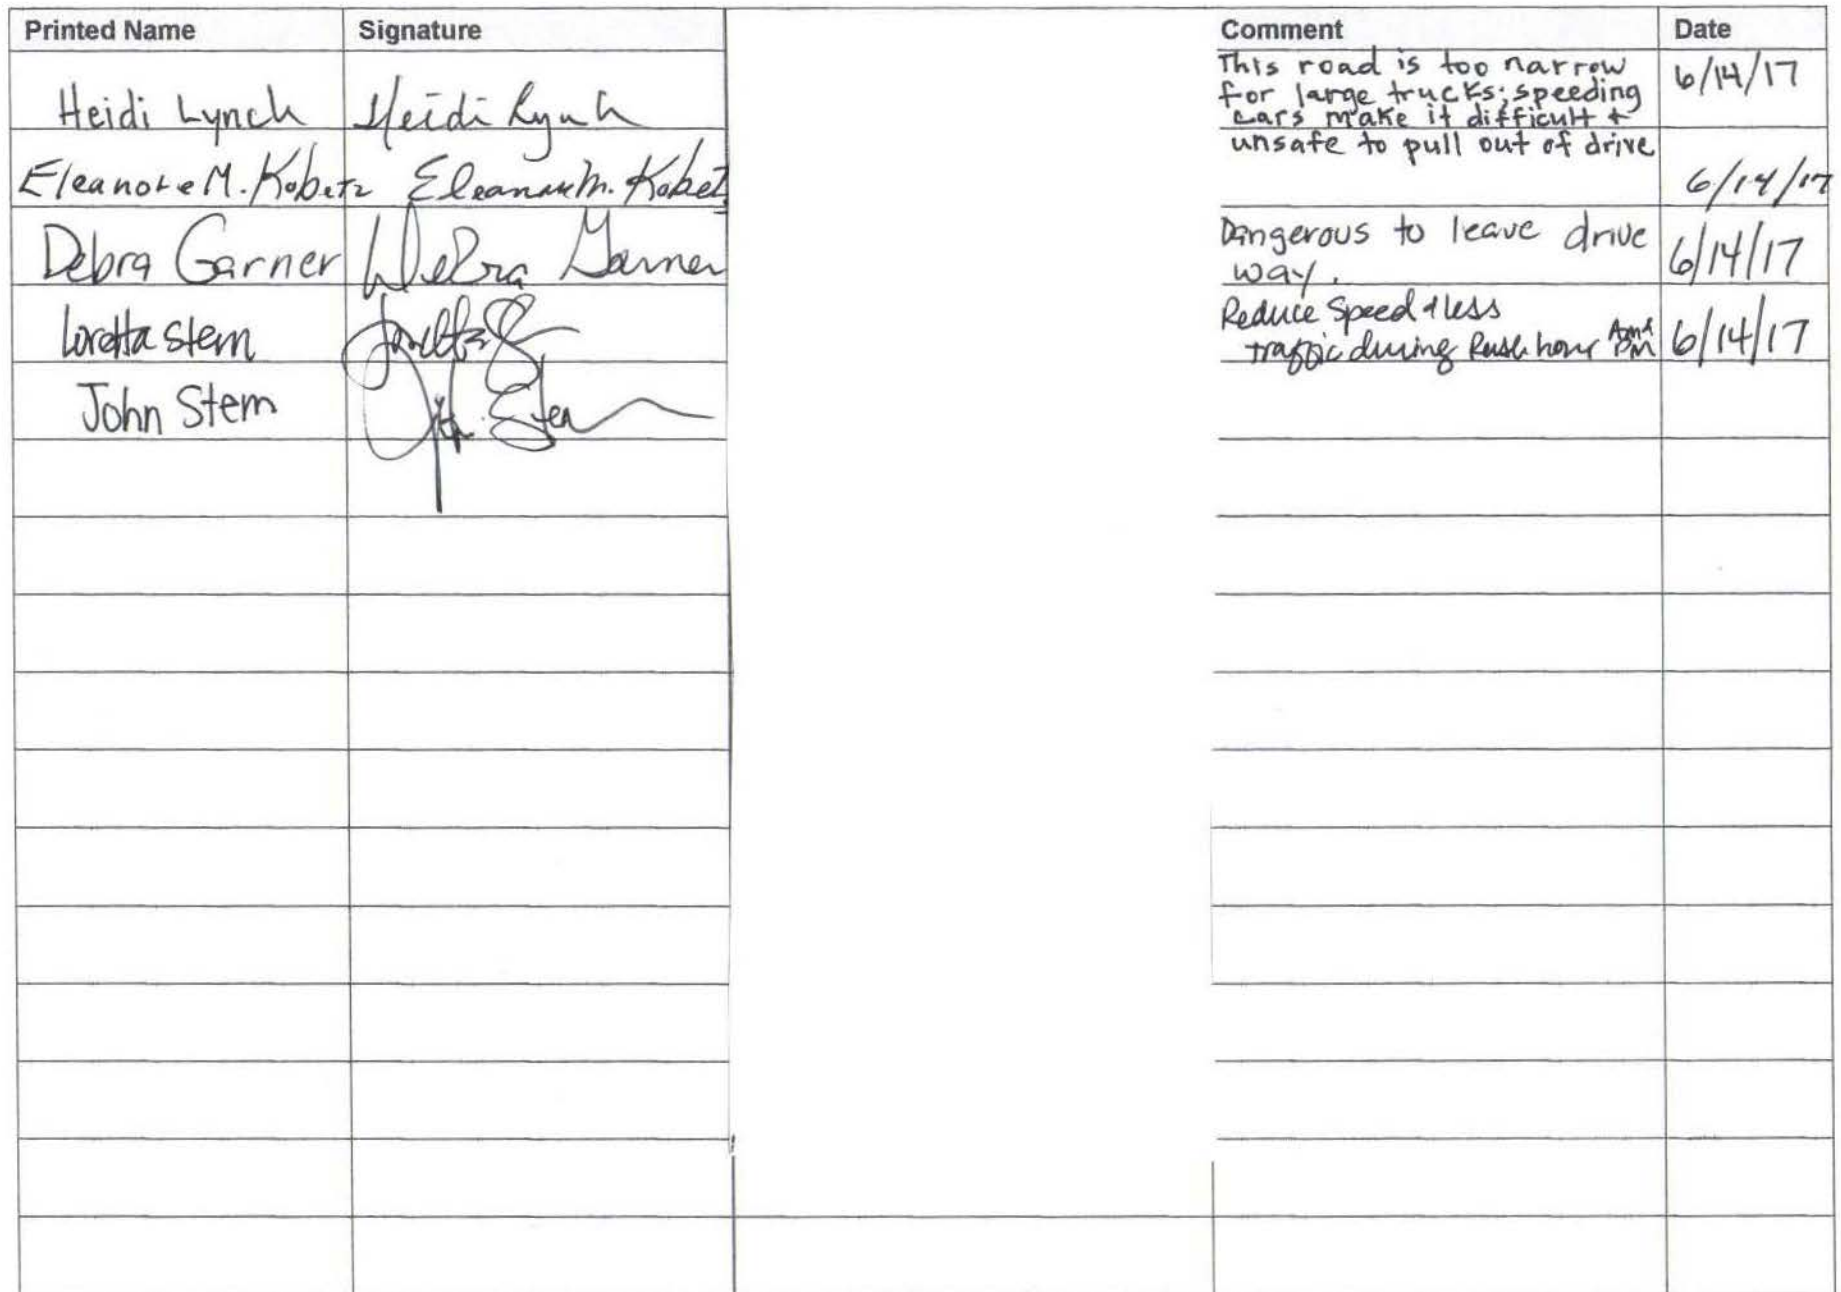 Printed Name Signature Comment Date
Heidi Lynch Heidi Lynch This road is too narrow 6/14/17
for large trucks; speeding
cars make it difficult +
unsafe to pull out of drive
Eleanore M. Kobetz Eleanore M. Kobetz 6/14/17
Debra Garner Debra Garner Dangerous to leave drive 6/14/17
way.
Loretta Stem Loretta Reduce Speed & less 6/14/17
traffic during Rush hour AM & PM
John Stem John Stem